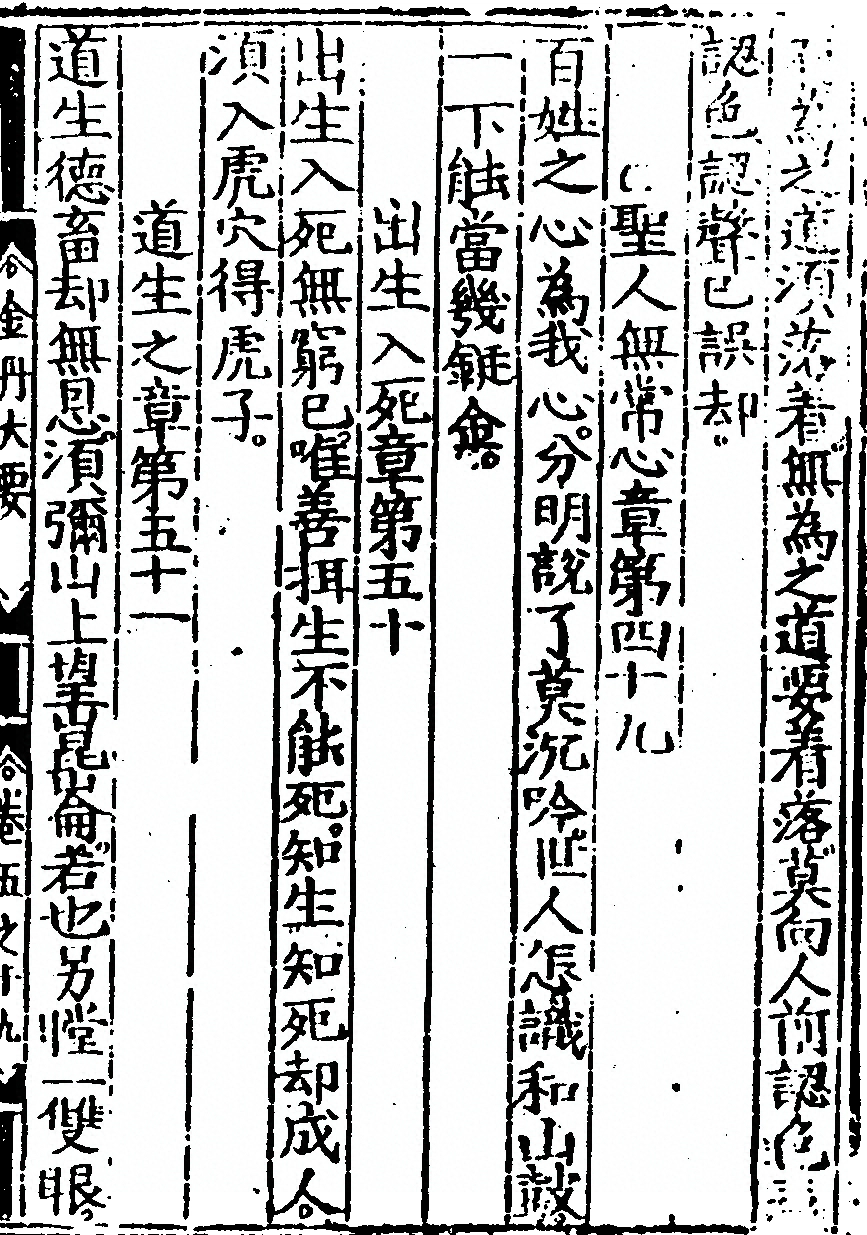 為之道須落着無為之道要着落莫向人前認色
認色認聲已誤却
聖人無常心章第四十九
百姓之心為我心分明說了莫沉吟世人怎識和山鼓
一下能當幾鋌金
出生入死章第五十
出生入死無窮已唯善攝生不能死知生知死却成人
須入虎穴得虎子
道生之章第五十一
道生德畜却無恩須彌山上望崑崙若也另瞠一雙眼
金丹大要 卷五之十九